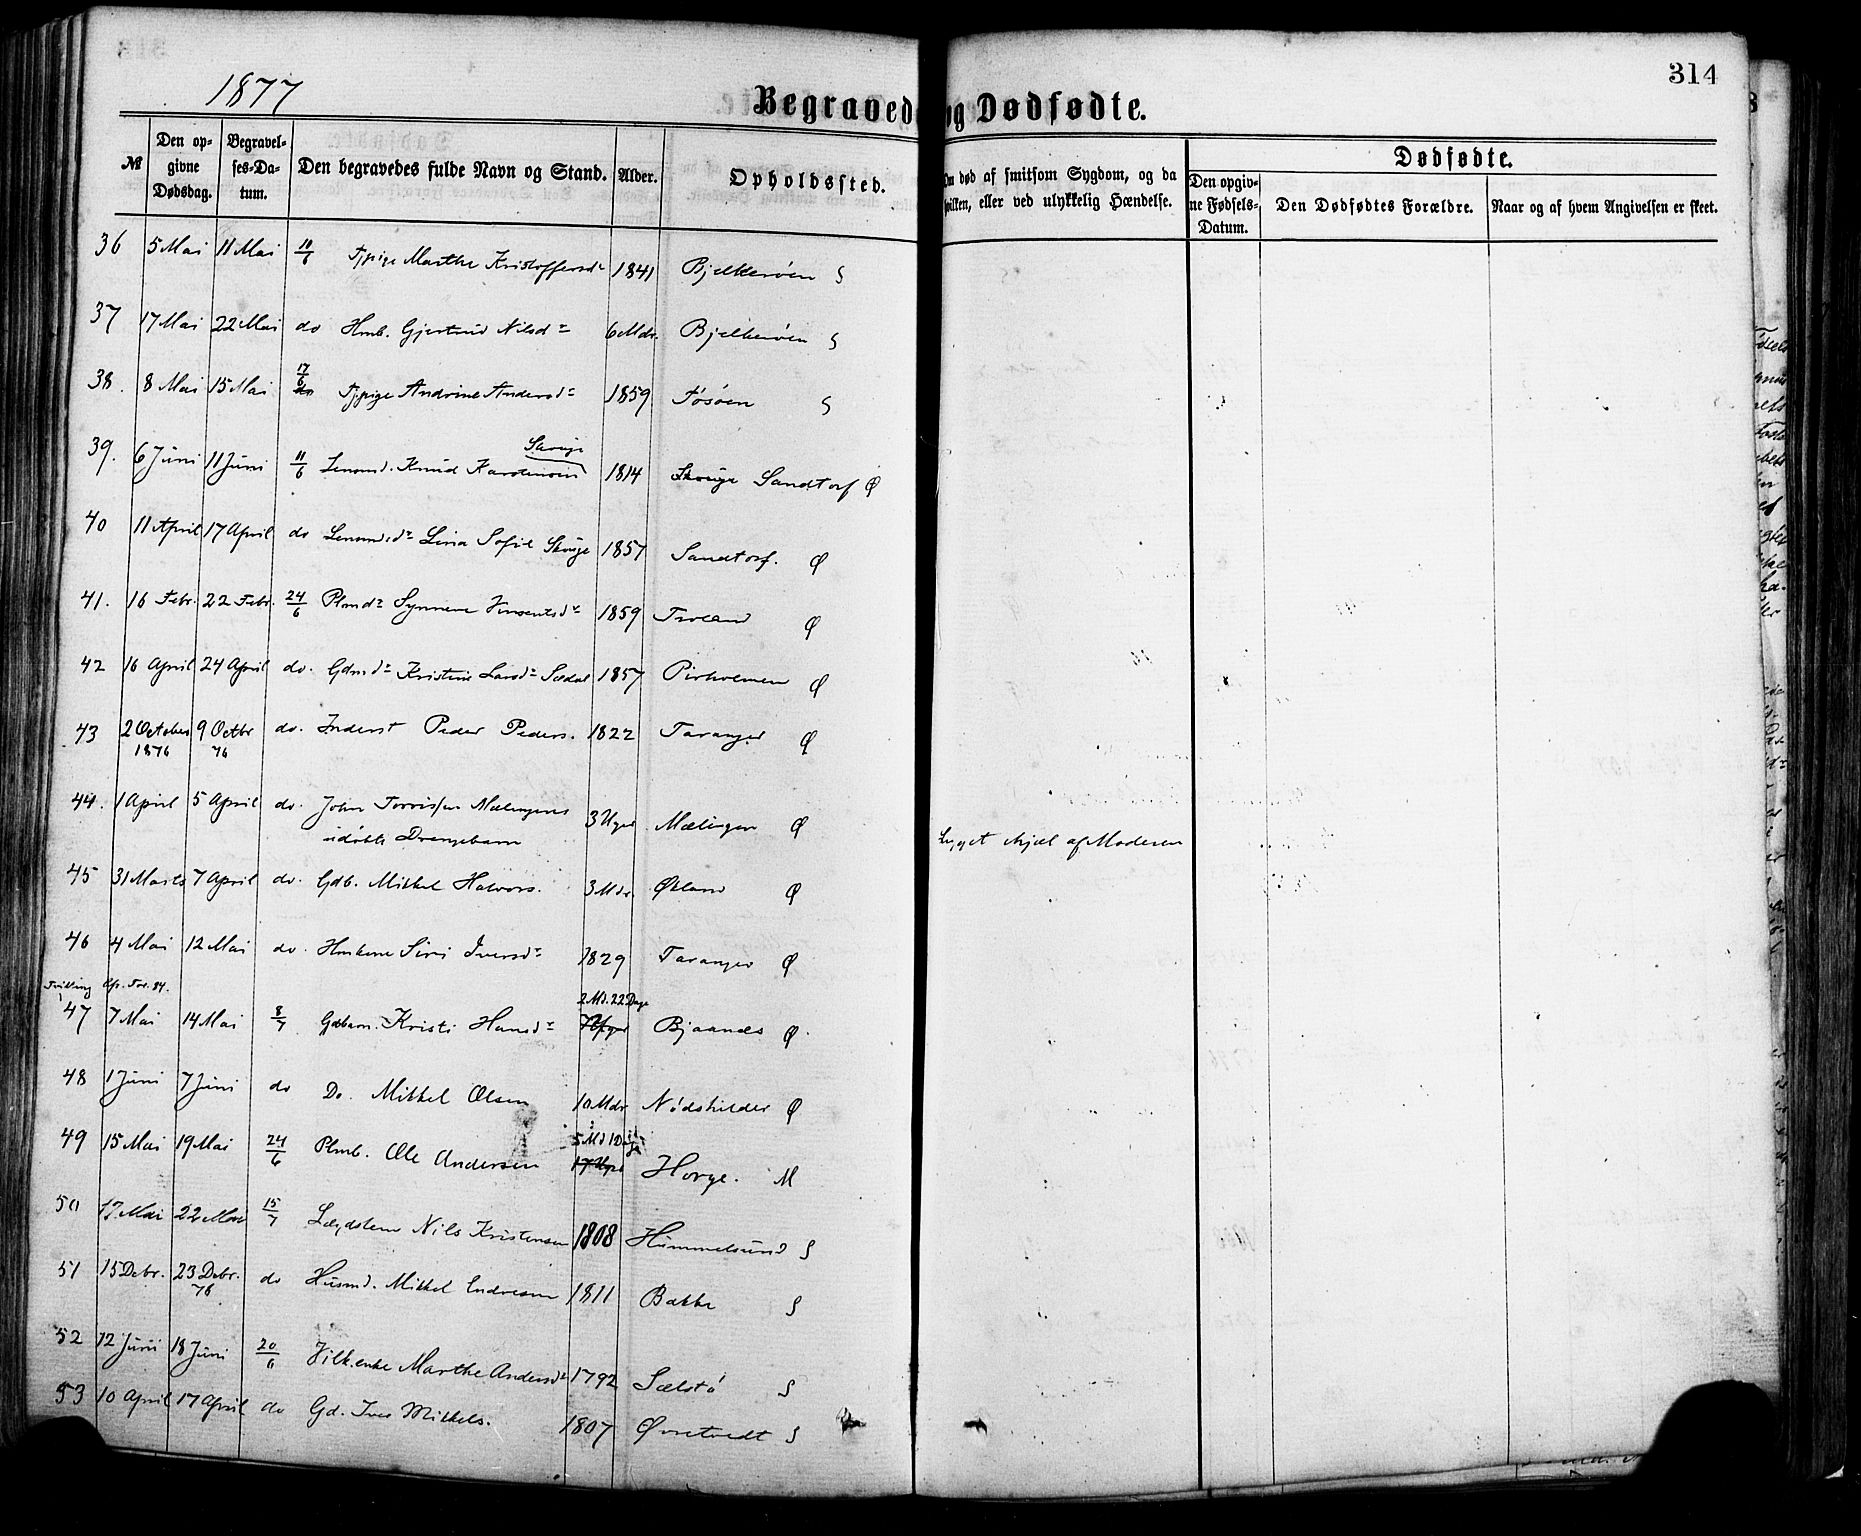 314
1877
Begravede og Dødfødte.
№ Den opgivne Dødsdag. Begravelses-Datum. Den begravedes fulde Navn og Stand. Alder. Opholdssted. Om død af smitsom Sygdom, og da hvilken, eller ved ulykkelig Hændelse. Dødfødte.
Den opgivne Fødsels-Datum. Den Dødfødtes Forældre. Naar og af hvem Angivelsen er skeet.
36 5 Mai 11 Mai Tjpige Marthe Kristoffersdr 1841 Bjelkerøen S
37 17 Mai 22 Mai do Hmb. Gjertrud Nilsdr 6 Mdr. Bjelkerøen S
38. 8 Mai 15 Mai 17/6 Tjpige Andrine Andersdr 1859 Tøsøen S
39. 6 Juni 11 Juni 11/6 Lensmd. Knud Karstensen Skouge 1814 Skouge Sandtorf Ø
40 11 April 17 April do Lensmdsdr Lina Sofie Skouge 1857 Sandtorf. Ø
41. 16 Febr. 22 Febr. 24/6 Plmdr Synneve Vinsentsdr 1859 Ø
42 16 April 24 April do. Gdmdr Kristine Larsdr Sædal 1857 Pirholmen Ø
43 2 October 1876 9 Octbr 76 do. Inderst Peder Peders. 1822 Taranger Ø
44. 1 April 5 April do. John Mælingens
udøbte Drengebarn 3 Uger Mælingen Ø Ligget ihjæl af Moderen
45 31 Marts 7 April do. Gdb. Mikkel Halvors. 3 Mdr. Økland Ø
46 4 Mai 12 Mai do. Hmkone Siri Iversdr 1829 Taranger Ø
Tvilling
47 7 Mai 14 Mai 8/7 Gdbarn. Kristi Hansdr 2 Md. 22 Dage Bjaanæs Ø
48 1 Juni 7 Juni do Do. Mikkel Olsen 10 Mdr Nødskilder Ø
49 15 Mai 19 Mai 24/6 Plmb. Ole Andersen 5 Md 1 Dag Horge. M
50 17 Mai 22 Mai 15/7 Nils Kristensen 1808 Hummelsund S
51 15 Debr. 23 Debr. 76 do Husmd. Mikkel Endresen 1811 Bakke S
52 12 Juni 18 Juni 20/6 Marthe Andersdr 1792 Sælstø S
53 10 April 17 April do Gd. Iver Mikkels. 1807 Øvretvedt S